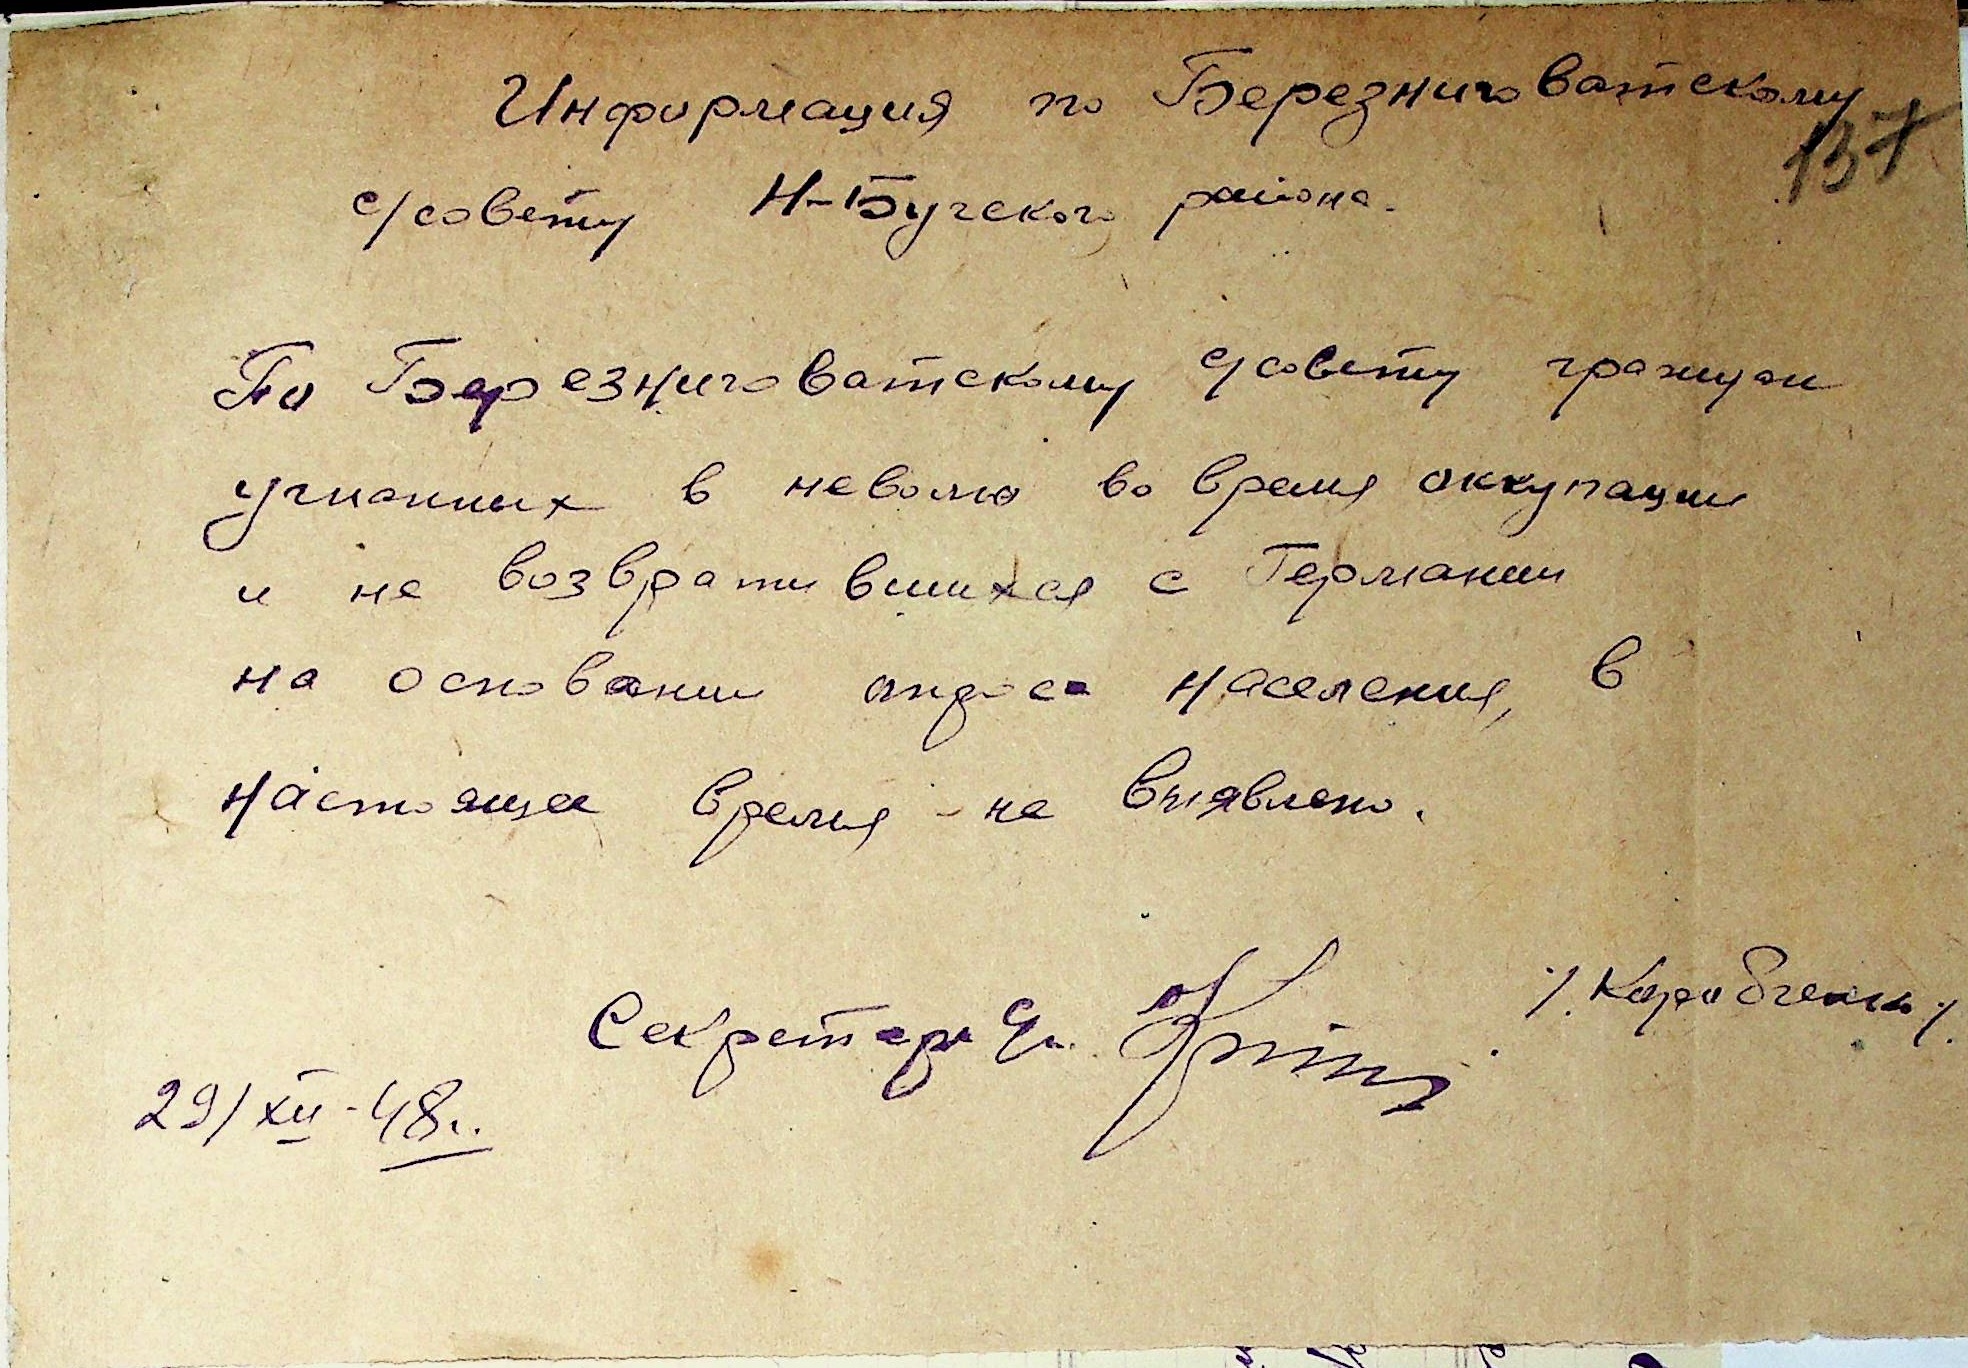 Информация по Березниговатскому
137
с/совету Н-Бугского района.
По Березниговатскому с/совету граждан
угнанных в неволю во время оккупации
и не возвратившихся с Германии
на основании опроса населения, в
настоящее время не выявлено.
Секретарь
/. Коробченко /.
29/XII-48г.